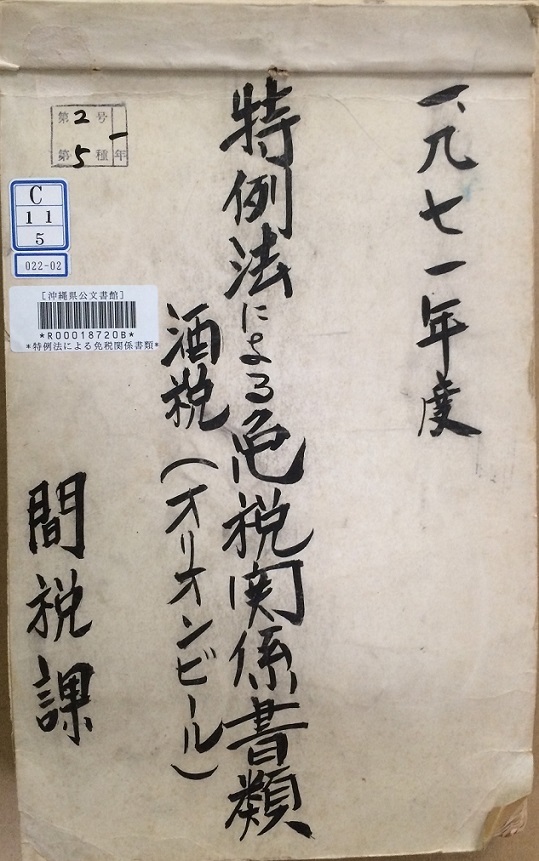 一九七一年度
特例法による免税関係書類
酒税(オリオンビール)
間税課
第2号
第5種
一年
C
11
5
022-02
[沖縄県公文書館]
*R00018720B*
*特例法による免税関係書類*